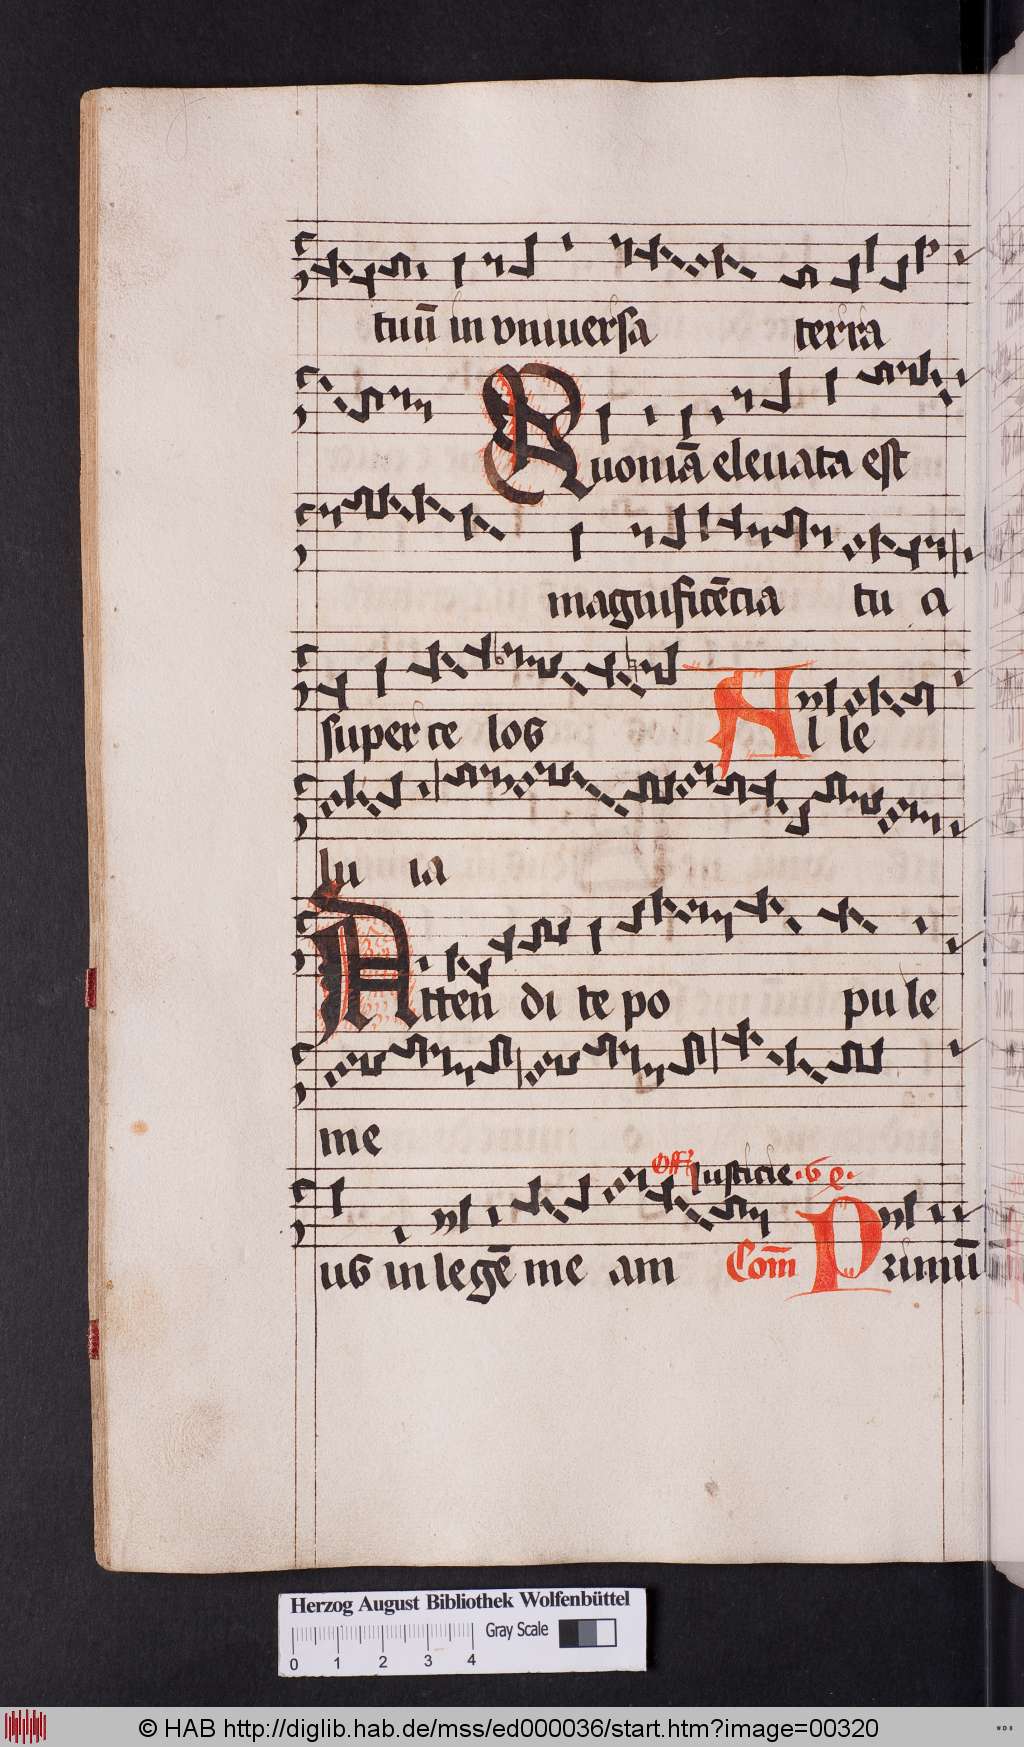 tuū in vniuersa terra
Quoniā eleuata est
magnificēcia tu a
super ce los
Al le
lu ia
Atten di te po pu le
me
Off Iusticie
us in legē me am Com̄ Primū
Herzog August Bibliothek Wolfenbüttel
Gray Scale
0 1 2 3 4
© HAB http://diglib.hab.de/mss/ed000036/start.htm?image=00320